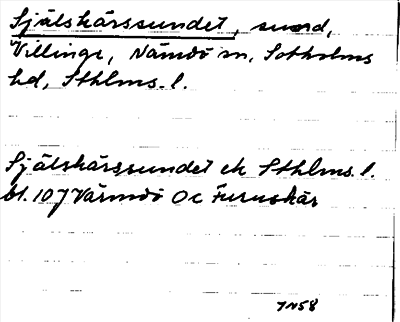 Själskärssundet, sund,
Villinge, Nämdö sn, Sotholms
hd, Sthlms. l.
Själskärssundet ek Sthlms. l.
bl. 107 Värmdö Oc Furuskär
7N58